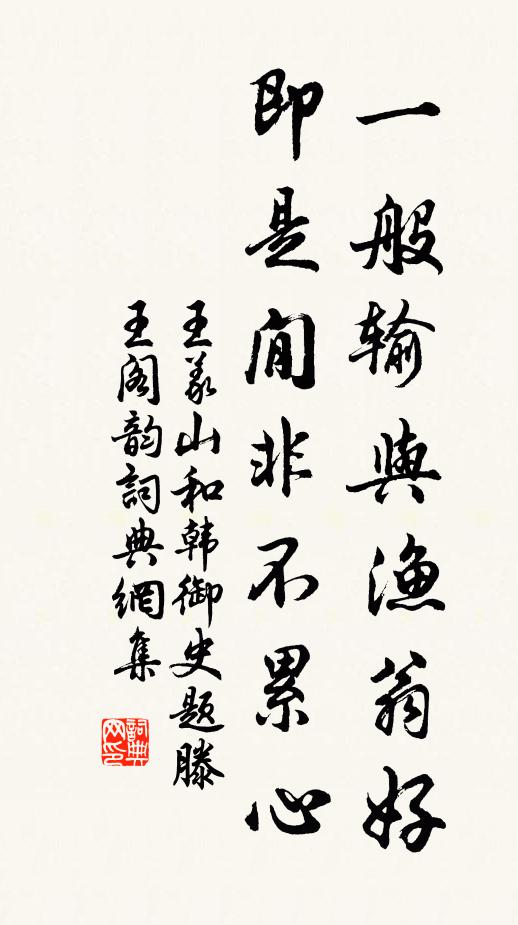 一般输與漁翁好
即是閒非不累心
王義山和韩御史题滕
王阁韵詞典網集
詞典
网印